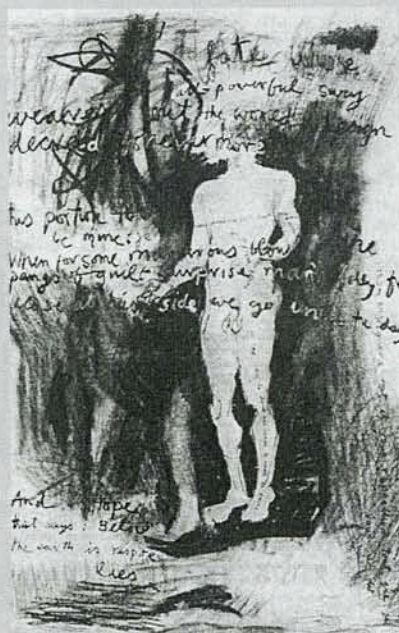 fate whose
all-powerful sway
weaves out the world's design
decreed for evermore
this portion to
be mine:
When for some murderous blow the
pangs of guilt surprise man
close at his side we go
And Hope
that says: Below
the earth is respite
lies